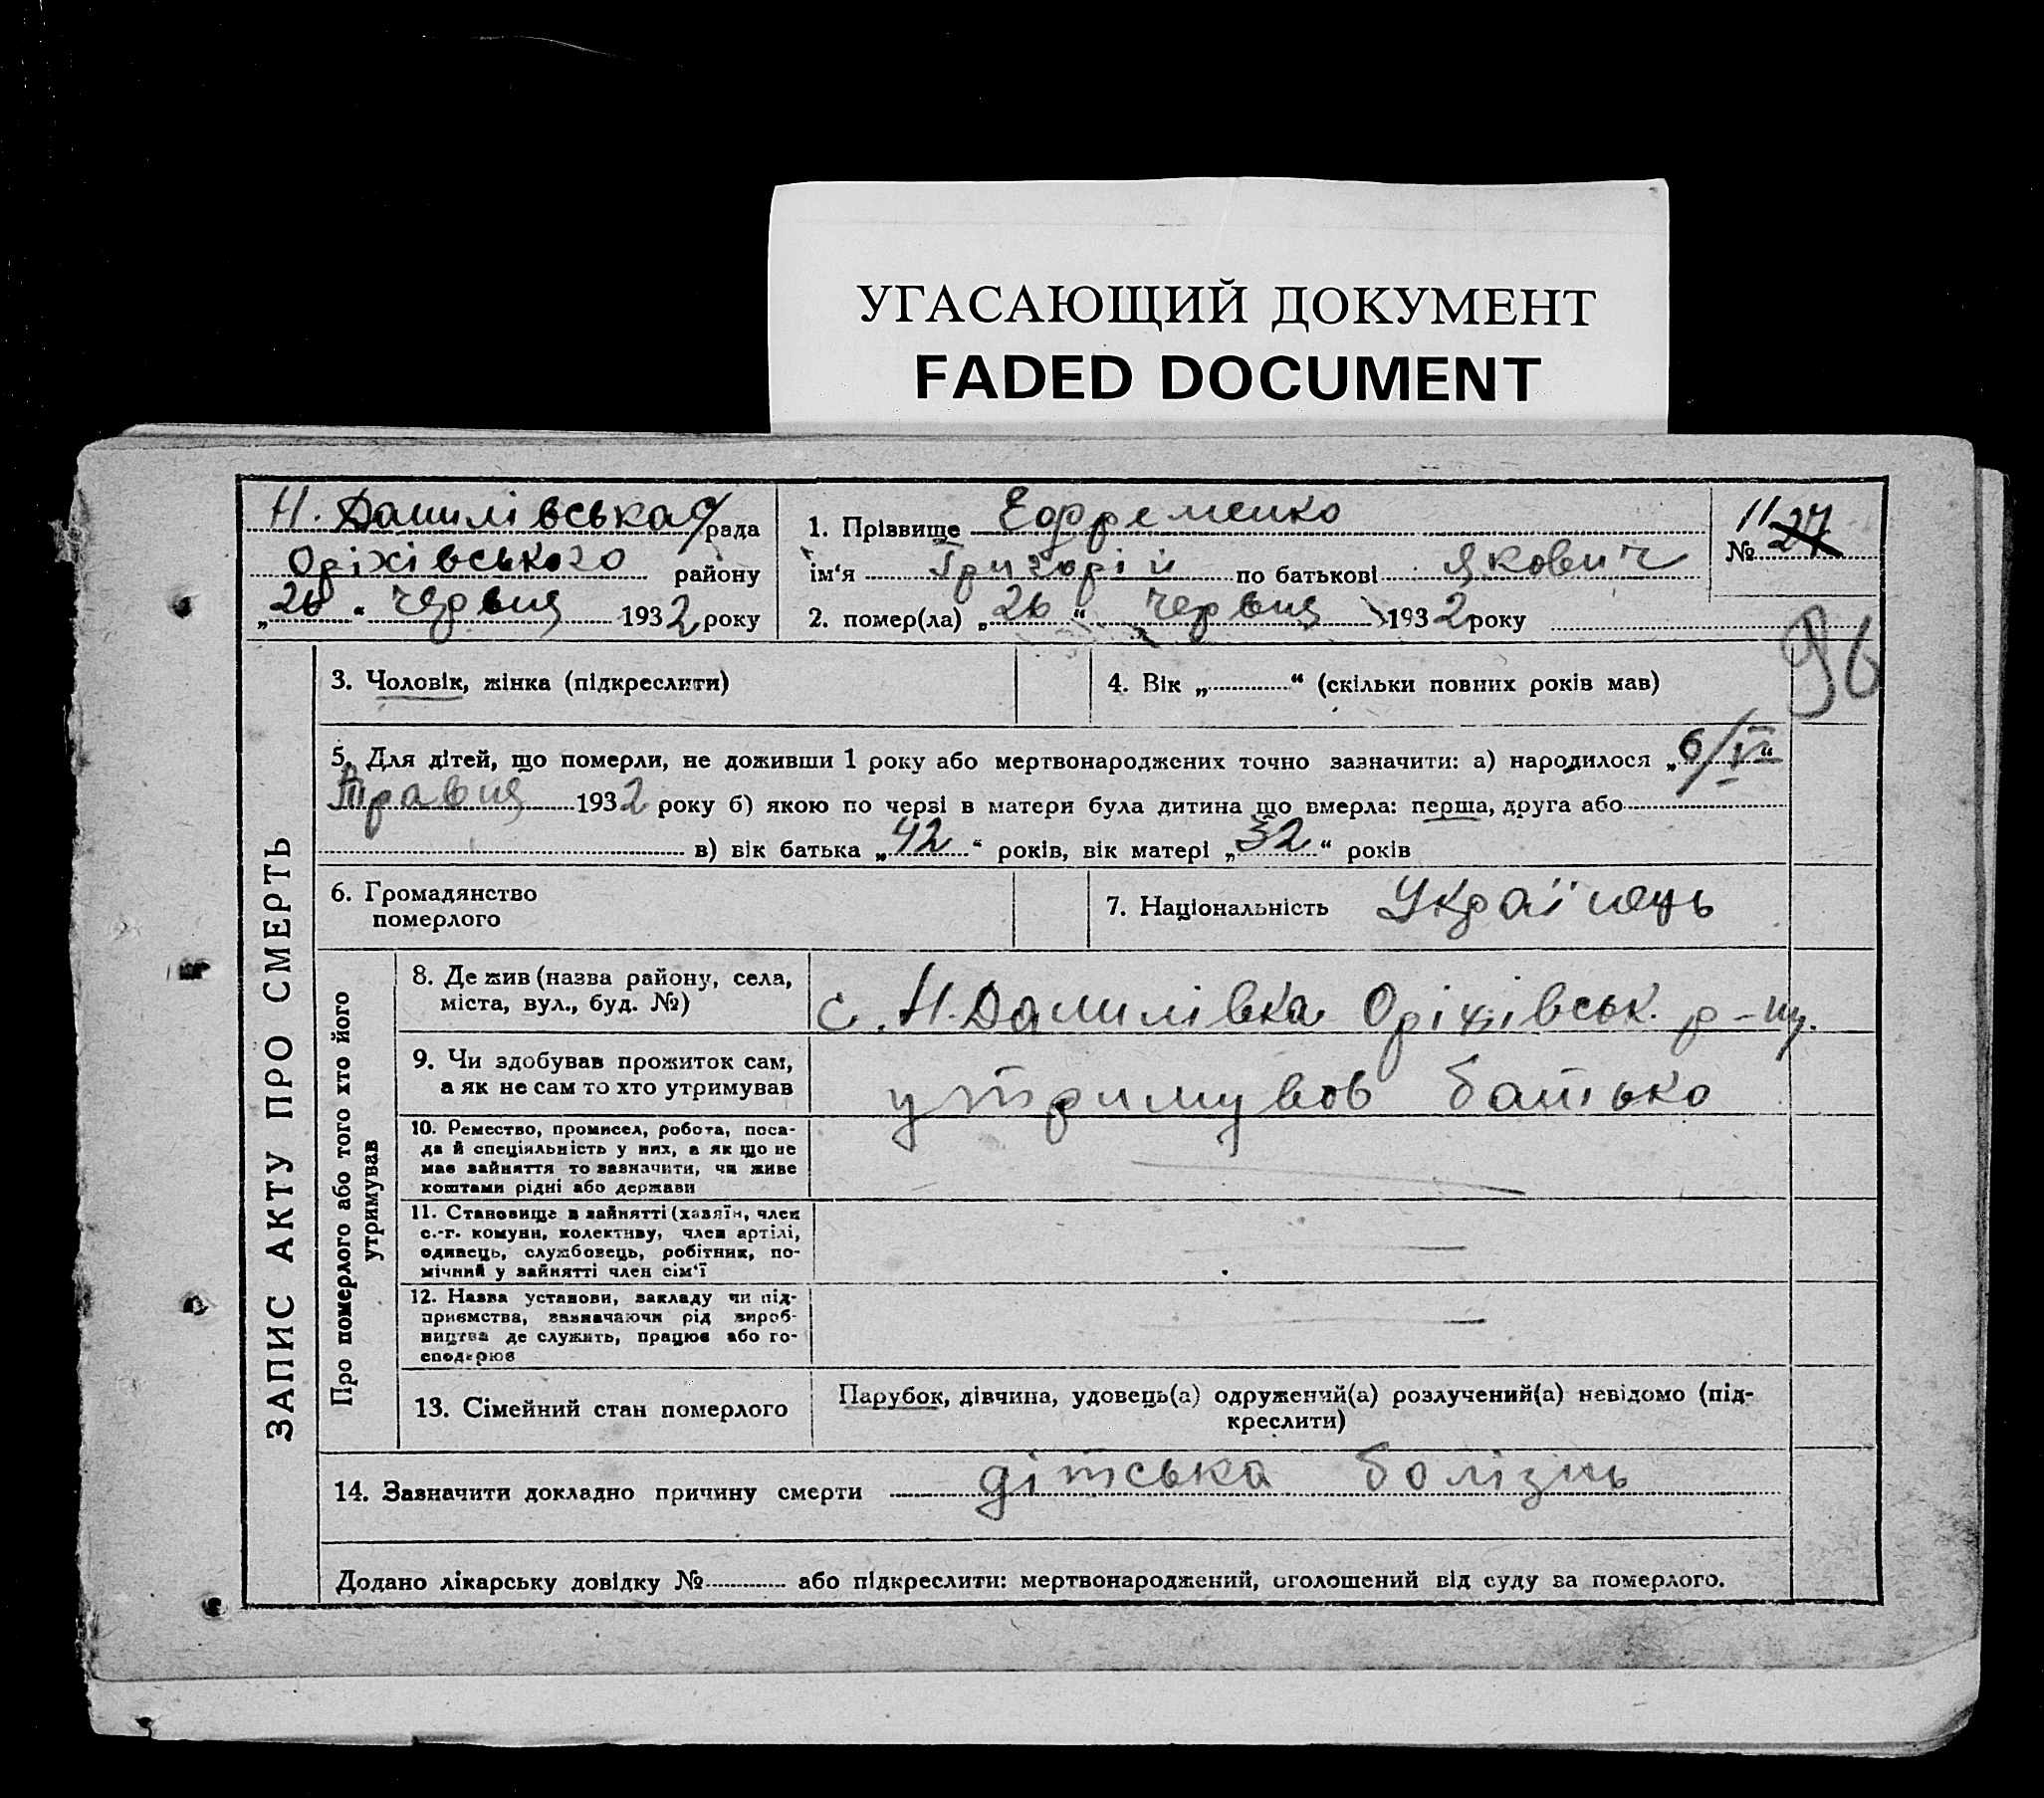 УГАСАЮЩИЙ ДОКУМЕНТ
FADED DOCUMENT
Н. Данилівська рада
Оріхівського району
„26“ червня 1932 року
1. Прізвище Єфременко
ім‘я Григорій по батькові Якович
2. помер(ла) „26“ червня 1932 року
№ 11 27
96
ЗАПИС АКТУ ПРО СМЕРТЬ
3. Чоловік, жінка (підкреслити)
4. Вік „............“ (скільки повних років мав)
5. Для дітей, що померли, не доживши 1 року або мертвонароджених точно зазначити: а) народилося „6/V“
Травня 1932 року б) якою по черзі в матери була дитина що вмерла: перша, друга або
в) вік батька „42“ років, вік матері „32“ років
6. Громадянство
померлого
7. Національність Українець
Про померлого або того хто його
утримував
8. Де жив (назва району, села,
міста, вул., буд. №)
с. Н. Данилівка Оріхівськ. р-ну.
9. Чи здобував прожиток сам,
а як не сам то хто утримував
утримував батько
10. Ремество, промисел, робота, поса-
да й спеціяльність у них, а як що не
має зайняття то зазначити, чи живе
коштами рідні або держави
11. Становище в зайнятті (хазяїн, член
с.-г. комуни, колективу, член артілі,
одинець, службовець, робітник, по-
мічний у зайнятті член сім‘ї
12. Назва установи, закладу чи під-
приємства, зазначаючи рід вироб-
ництва де служить, працює або го-
сподарює
13. Сімейний стан померлого
Парубок, дівчина, удовець(а) одружений(а) розлучений(а) невідомо (під-
креслити)
14. Зазначити докладно причину смерти дітська болізнь
Додано лікарську довідку №............ або підкреслити: мертвонароджений, оголошений від суду за померлого.